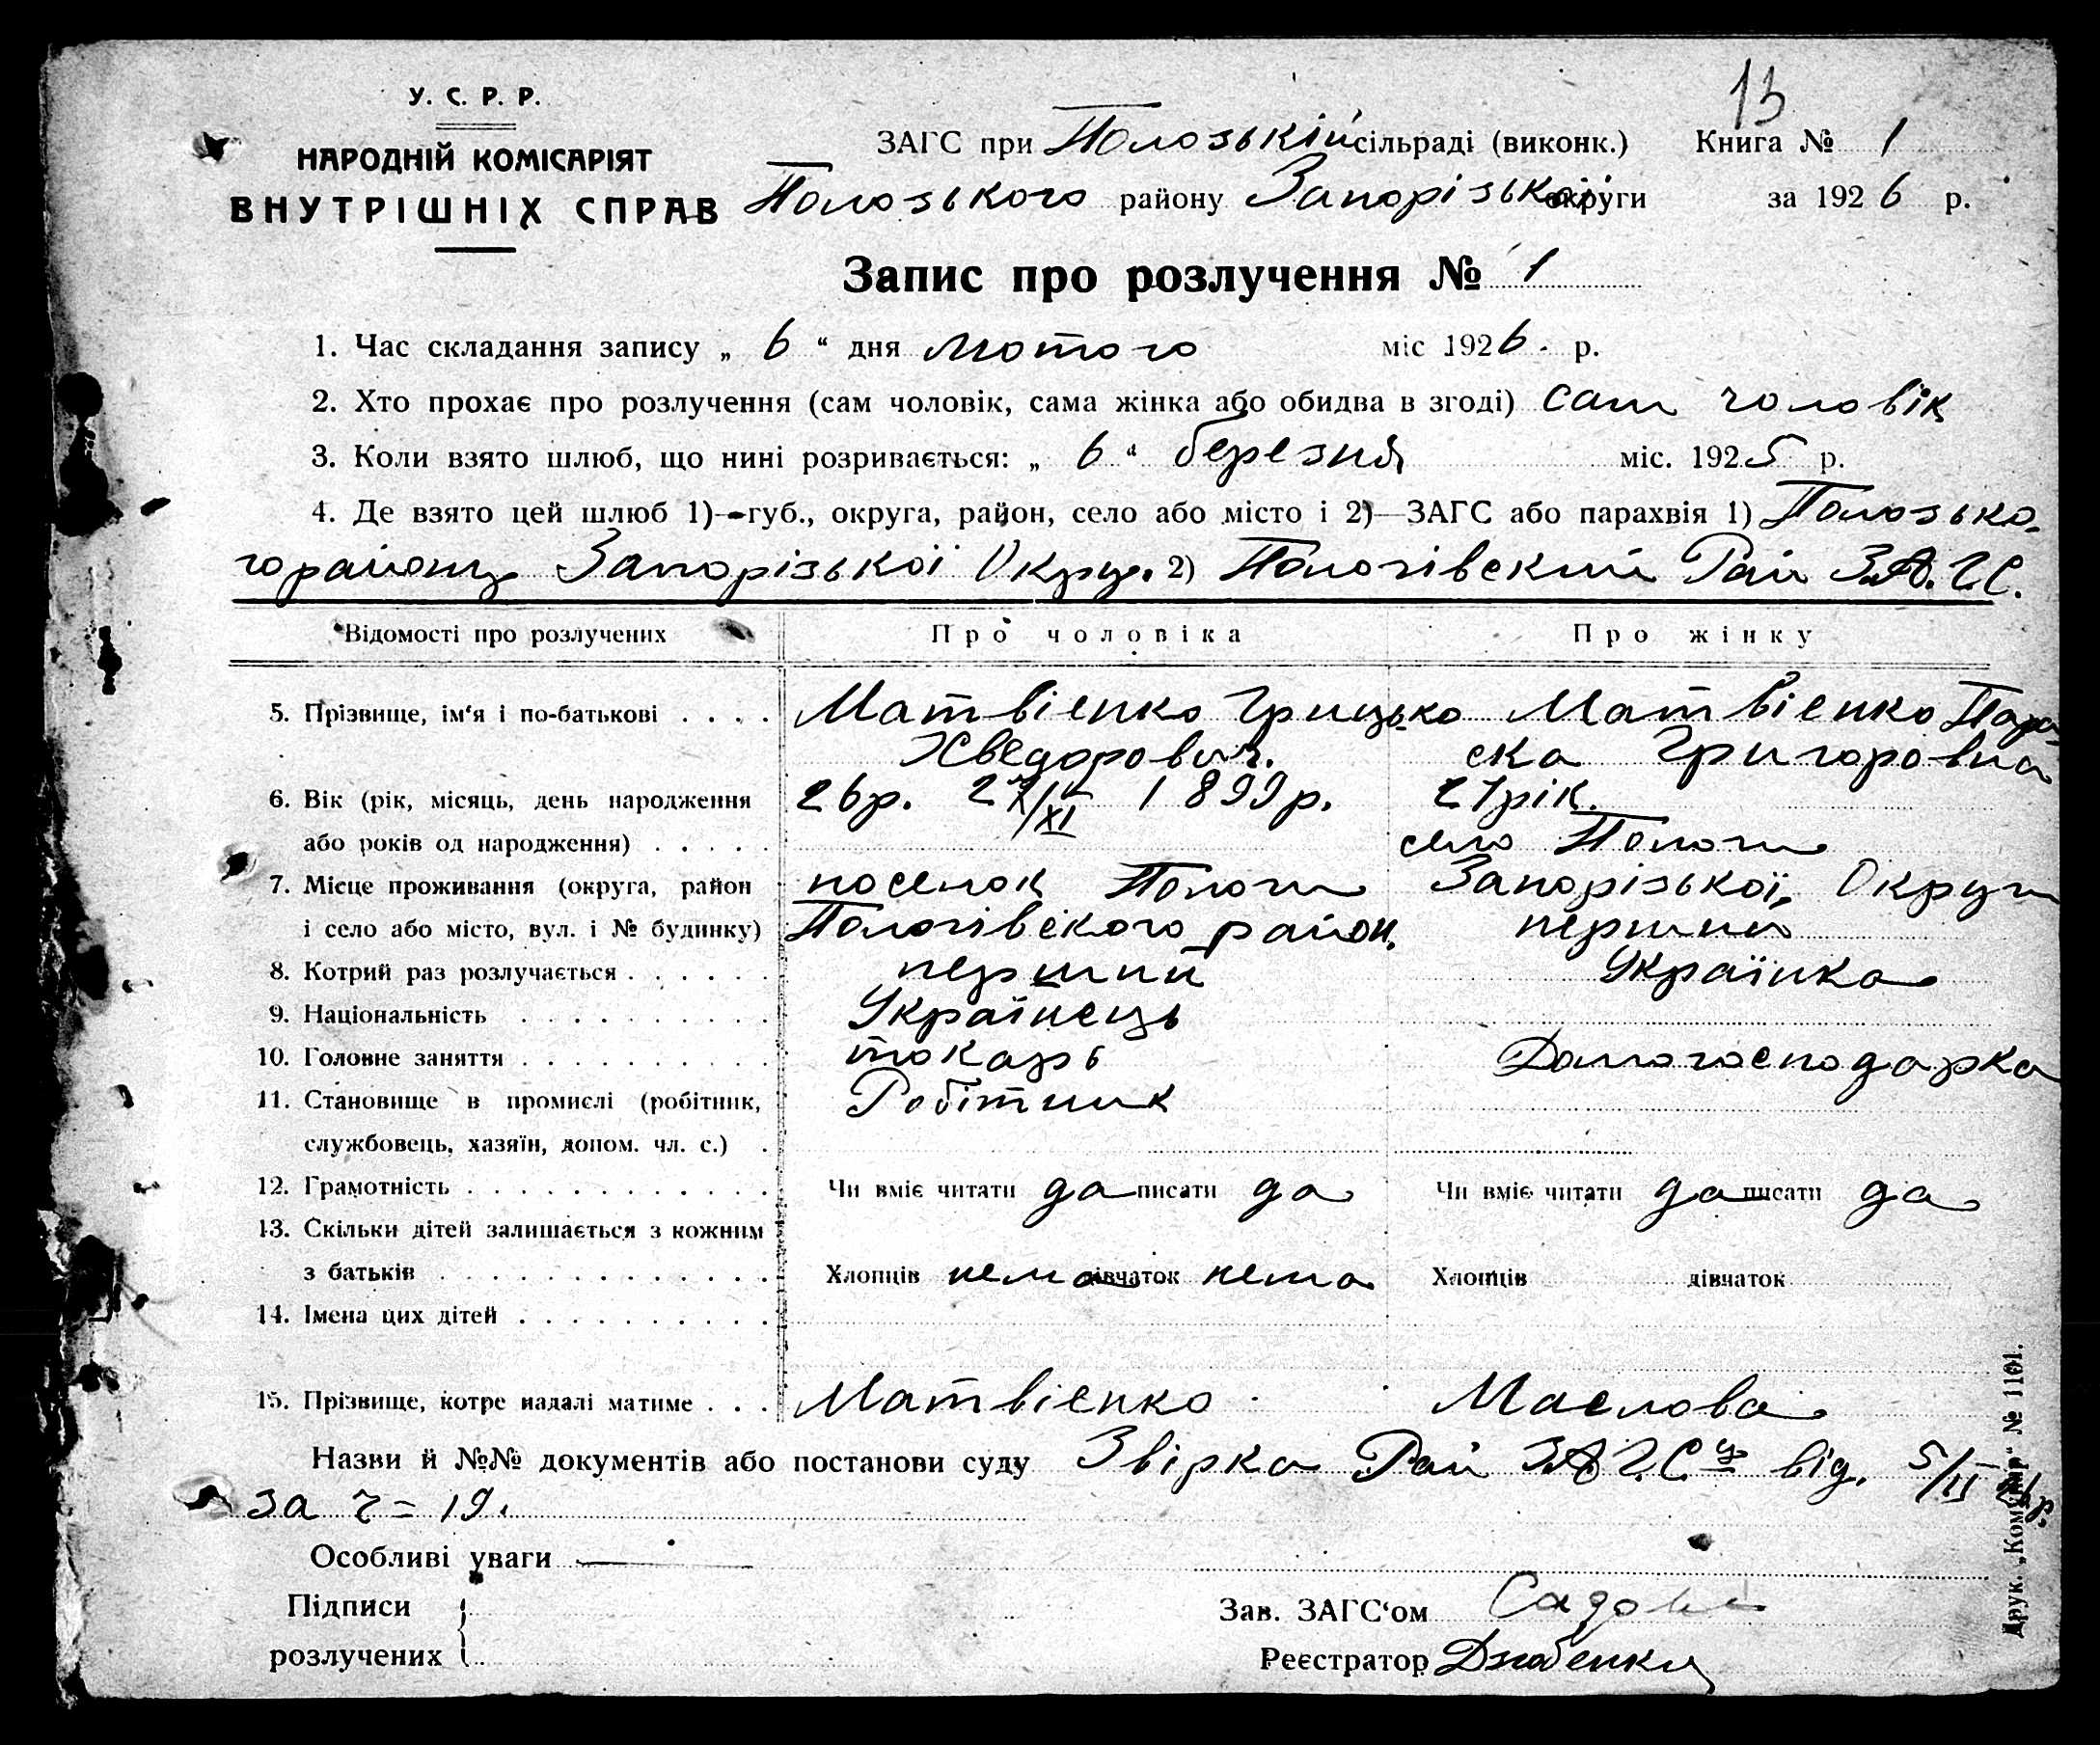 13
У. С. Р. Р.
НАРОДНІЙ КОМІСАРІЯТ
ВНУТРІШНІХ СПРАВ
ЗАГС при Полозькій сільраді (виконк.) Книга № 1
Полозького району Запорізької округи за 1926 р.
Запис про розлучення № 1
1. Час складання запису „ 6 “ дня лютого міс 1926. р.
2. Хто прохає про розлучення (сам чоловік, сама жінка або обидва в згоді) сам чоловік
3. Коли взято шлюб, що нині розривається: „ 6 “ березня міс. 1925 р.
4. Де взято цей шлюб 1)—губ., округа, район, село або місто і 2)—ЗАГС або парахвія 1) Полозько-
го району Запорізької Округ. 2) Пологівский Рай З.А.Г.С.
Відомості про розлучених Про чоловіка Про жінку
5. Прізвище, ім‘я і по-батькові . . . . Матвієнко Грицько Матвієнко Пара-
Хведорович. ска Григоровна
6. Вік (рік, місяць, день народження 26р. 1899р. 21 рік.
або років од народження) . . . . . село Пологи
7. Місце проживання (округа, район поселок Пологи Запорізької Округи
і село або місто, вул. і № будинку) Пологівского район. перший
8. Котрий раз розлучається . . . . . . перший Українка
9. Національність . . . . . . . . . . Українець
10. Головне заняття . . . . . . . . . . токарь Домогосподарка
11. Становище в промислі (робітник, Робітник
службовець, хазяїн, допом. чл. с.) .
12. Грамотність . . . . . . . . . . . . Чи вміє читати да писати да Чи вміє читати да писати да
13. Скільки дітей залишається з кожним
з батьків . . . . . . . . . . . . . Хлопців нема дівчаток нема Хлопців дівчаток
14. Імена цих дітей . . . . . . . . . .
15. Прізвище, котре надалі матиме . . . Матвієнко Маслова
Назви й №№ документів або постанови суду Звірка Рай ЗАГСу від. 5/II 26р.
за ч= 19.
Особливі уваги
Підписи
розлучених
Зав. ЗАГС‘ом
Реєстратор
Друк. „Комунар“ № 1101.